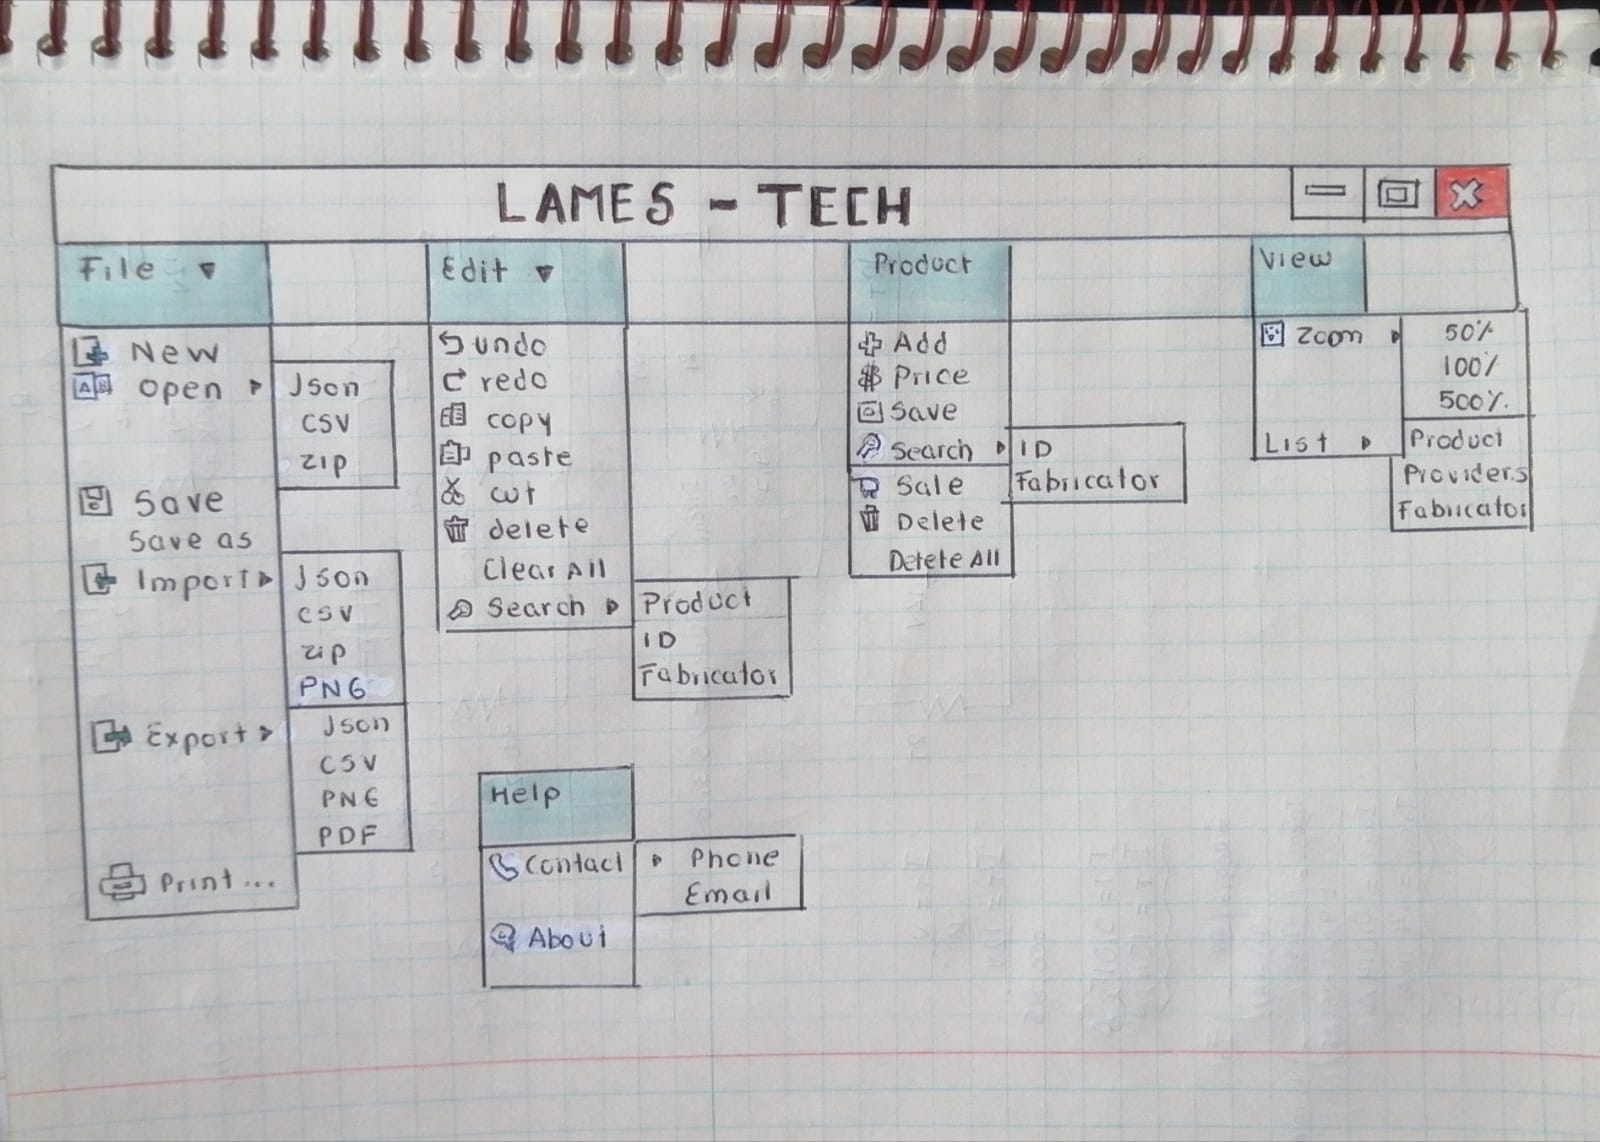 LAMES - TECH
File
New
Open
Json
CSV
zip
Save
Save as
Import
Json
CSV
zip
PNG
Export
Json
CSV
PNG
PDF
Print...
Edit
undo
redo
copy
paste
cut
delete
Clear All
Search
Product
ID
Fabricator
Product
Add
$ Price
Save
Search
ID
Fabricator
Sale
Delete
Delete All
View
Zoom
50%
100%
500%
List
Product
Providers
Fabricator
Help
Contact
Phone
Email
About